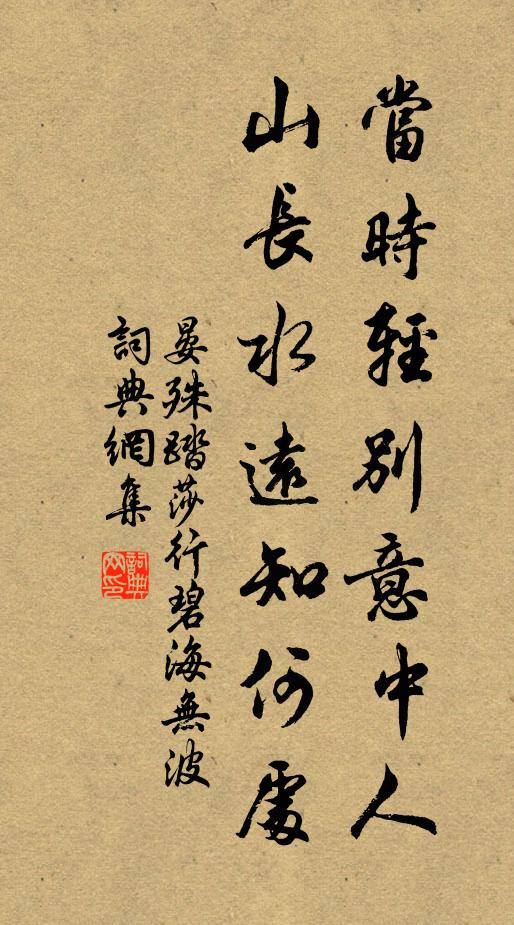 當時輕別意中人
山長水遠知何處
晏殊踏莎行碧海無波
詞典網集
詞典網印